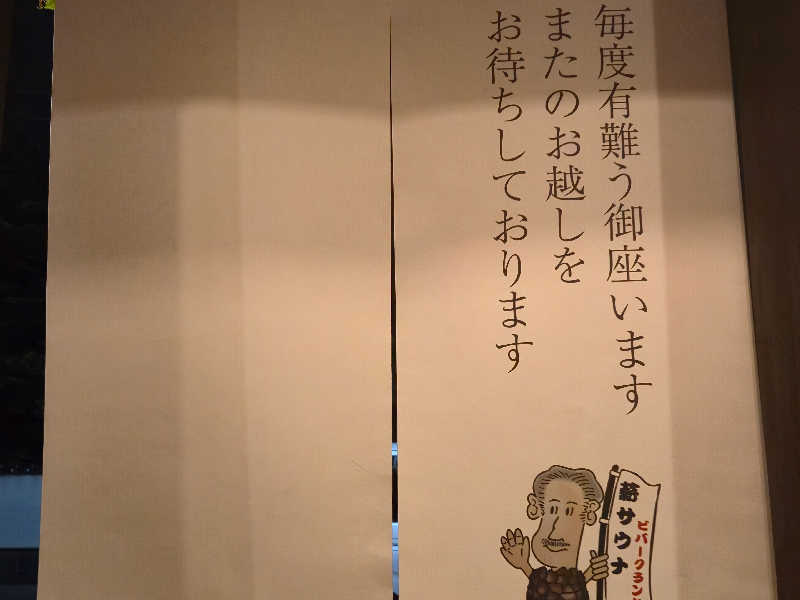 毎度有難う御座います
またのお越しを
お待ちしております
サウナ
ビバークランド